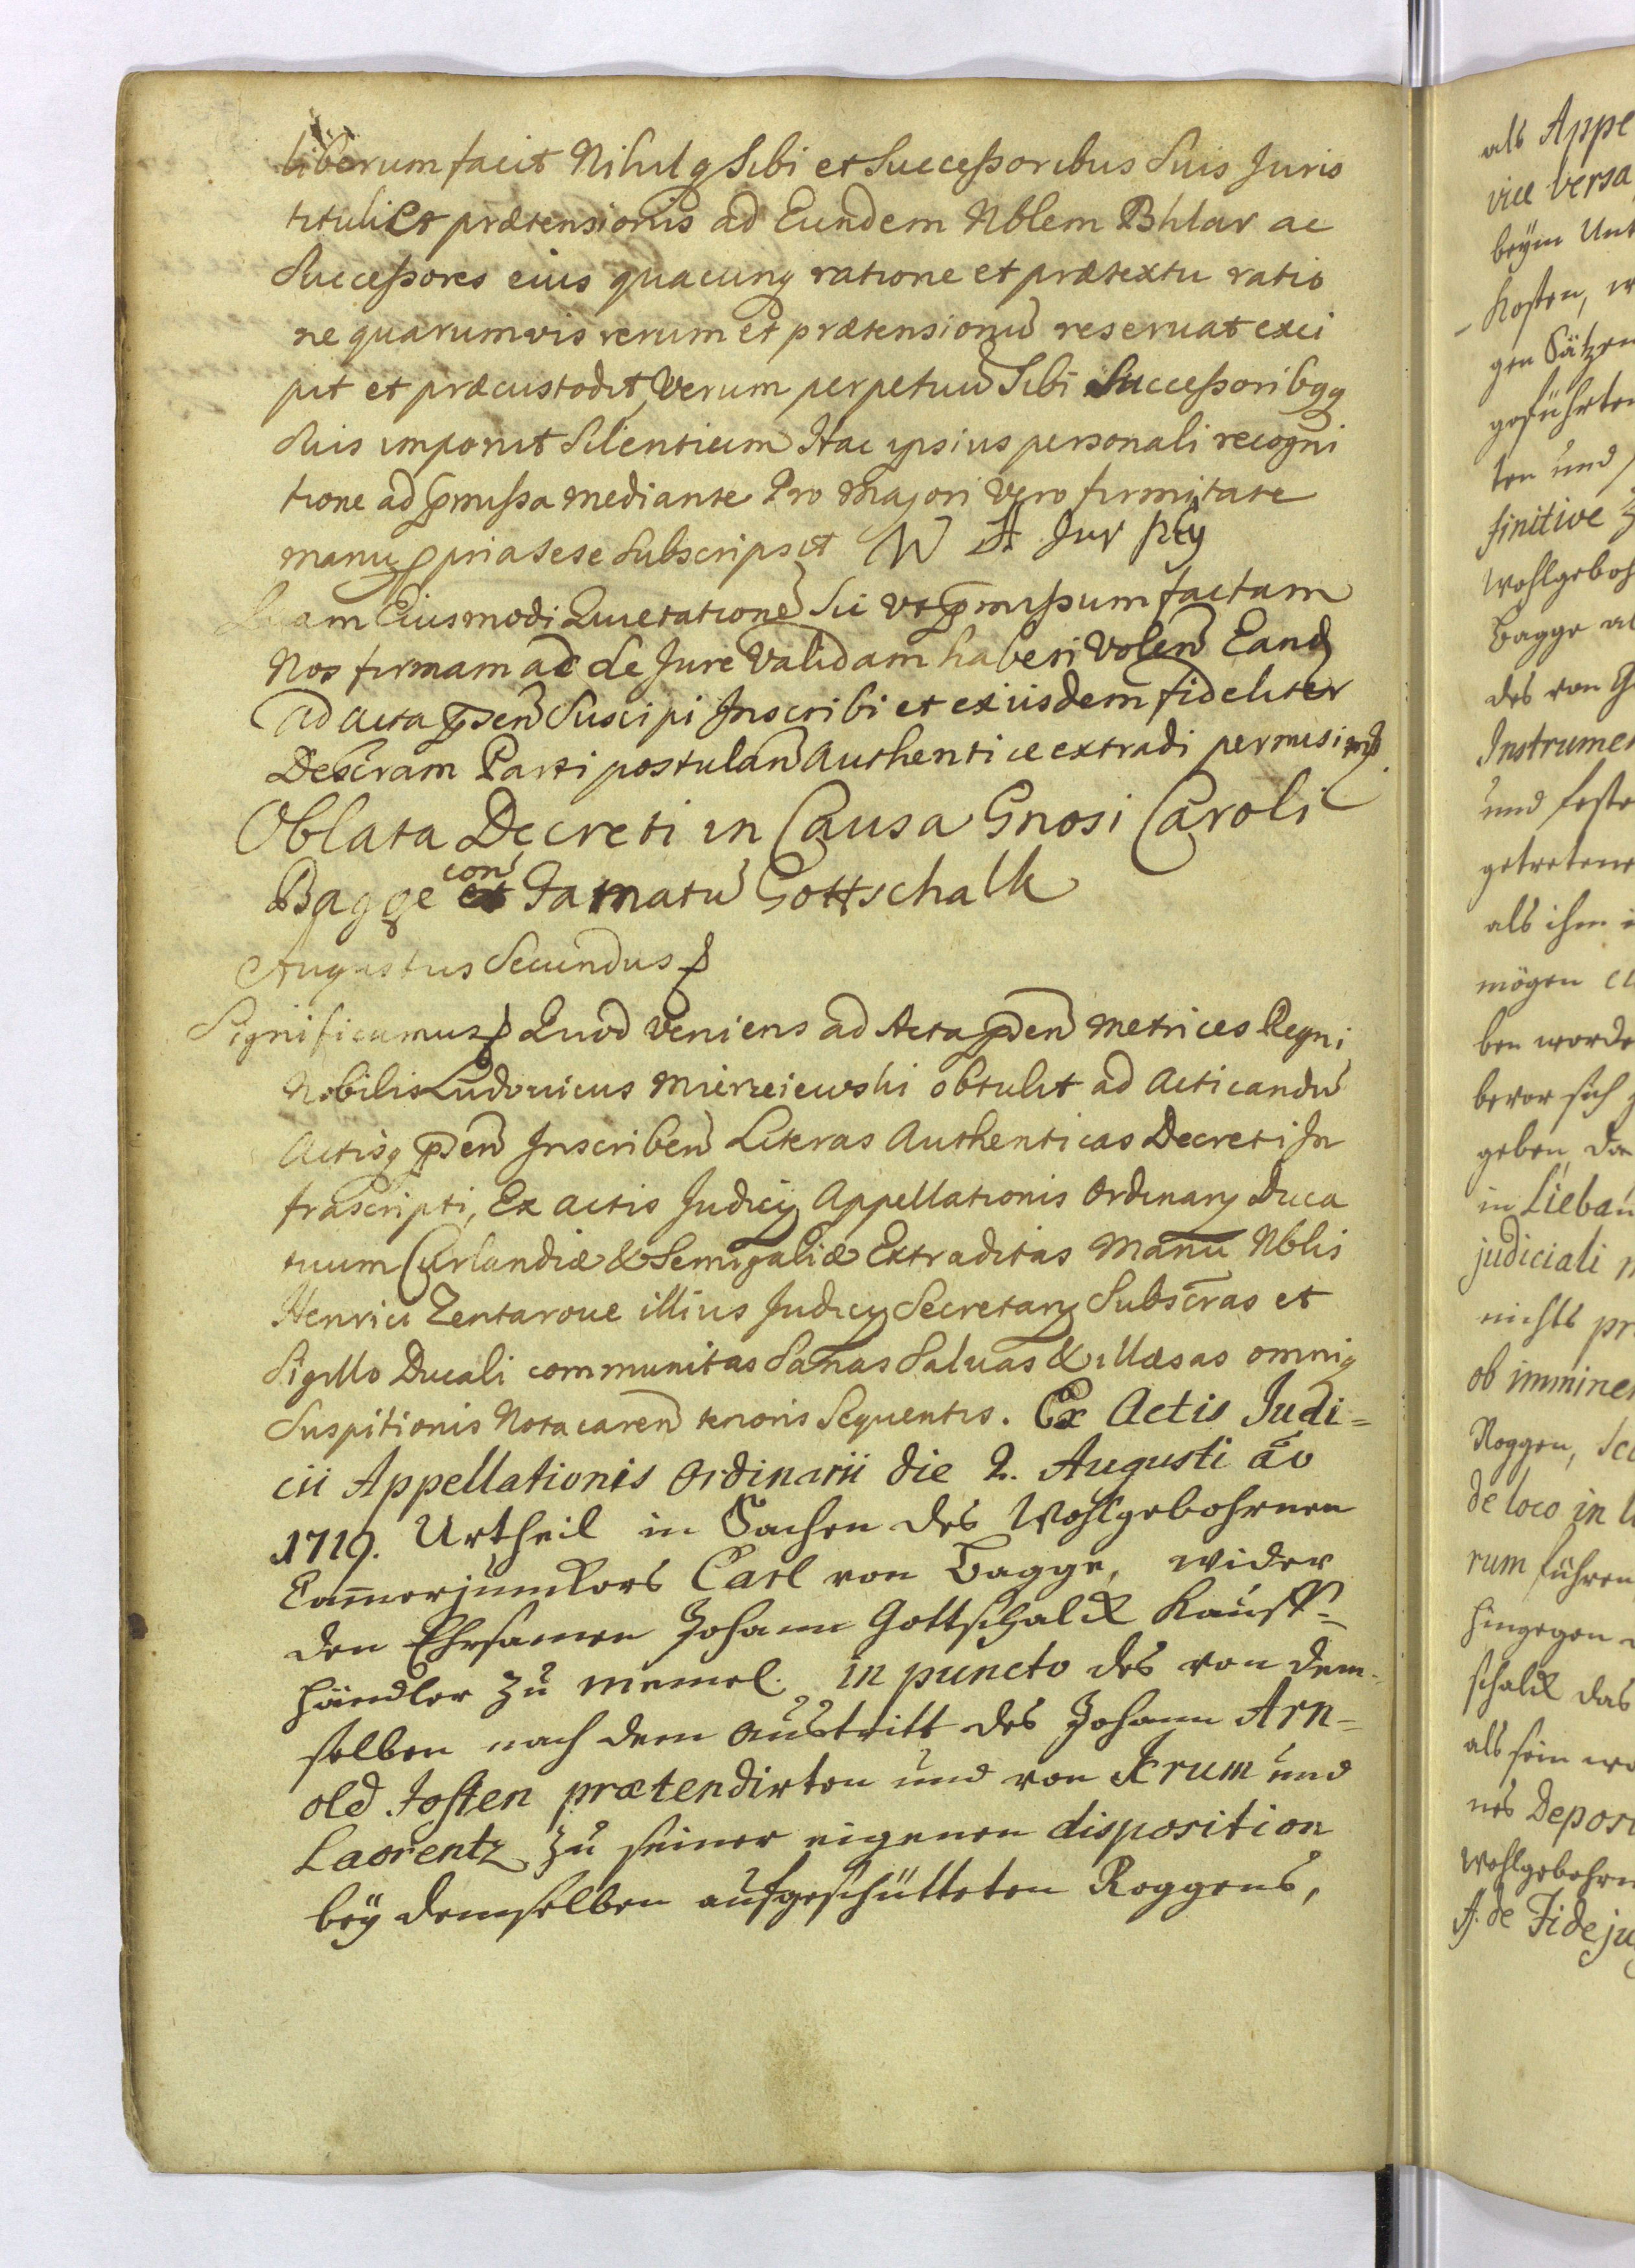 liberum facit Nihilq Sibi et Successoribus Suis Juris
tituli Et prætensionis ad Eundem Nblem Bhlar ac
Successores eius quacunq ratione et prætextu ratio
ne quarumvis rerum et prætensionu reseruat exci
pit et præcustodit, Verum perpetuu Sibi Successoribqq
Suis imponit Silentium Hac ipsius personali recogni
tione ad pmissa mediante Pro Majori Vero firmitate
manuq ppria Sese Subscripsit W
Quam Eiusmodi Quietatione Sic Vt pmissum factam
Nos firmam ac de Jure Validam haberi Volen Eand
ad acta psen Suscipi Inscribi et ex iisdem fideliter
Descram Parti postulan Authentice extradi permisimq.
Oblata Decreti in Causa Gnosi Caroli
Bagge con Famatu Gottschalk
Augustus Secundus
Significamus Quod Veniens ad Acta psen Metrices Regni
Nobilis Ludouicus Mierzeiewski obtulit ad Acticandu
Actisq psen Inscriben Literas Authenticas Decreti In
frascripti, Ex actis Judicij Appellationis Ordinarij Duca
tuum Curlandiæ & Semigaliæ Extraditas Manu Nblis
Henrici Zentaroue illius Judicij Secretarij Subscras et
Sigillo Ducali communitas Sanas Saluas & illæsas omniq
Suspitionis Nota caren tenoris Sequentis. Ex Actis Judi=
cii Appellationis Ordinarii die 2. Augusti ao
1719. Urtheil in Sachen des Wohlgebohrnen
Camerjunkers Carl von Bagge, wider
den Ehrsamen Johann Gottschalck Kauff=
händler zu Memel. in puncto des von dem=
selben nach dem Austritt des Johann Arn=
old Josten prætendirten und von Krum und
Laorentz zu seiner eigenen disposition
beÿ demselben aufgeschütteten Roggens,
als Appe
vice versa
beÿm Unt
Kosten, w
gen Sätzen
geführten
ten und
finitive
Wohlgeboh
Bagge al
des von G
Instrumen
und feste
getretene
als ihm i
mögen
ben worde
bevor sich
geben, da
in Liebau
judiciali
nichts pr
ob imminen
Roggen,
de loco in
rum führen
hingegen
schalck das
als sein
nes Deposi
Wohlgebohrn
de Fideju